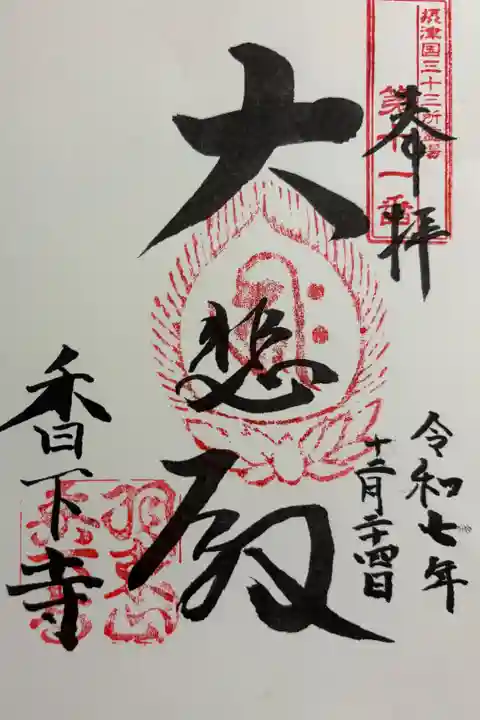 奉拝
摂津国三十三所霊場
第十一番
大悲殿
令和七年
十二月二十四日
香下寺